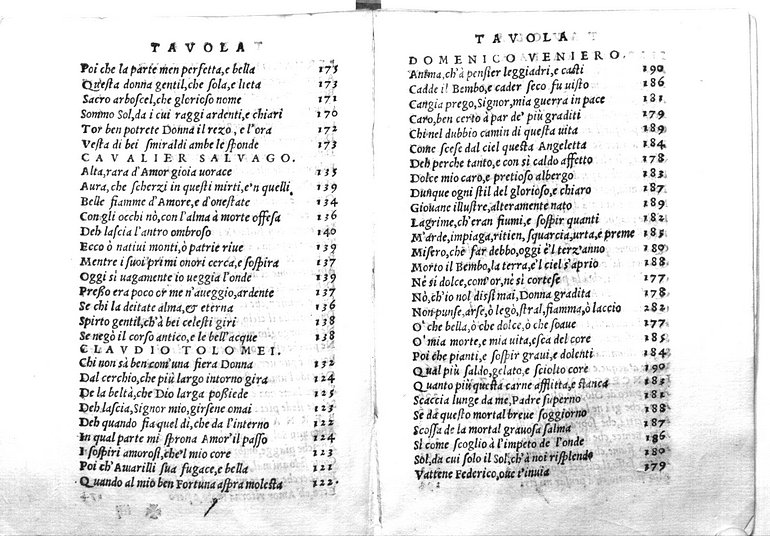 TAVOLA
Poi che la parte men perfetta, e bella 173
Questa donna gentil, che sola, e lieta 173
Sacro arboscel, che glorioso nome 171
Sommo Sol, da i cui raggi ardenti, e chiari 170
Tor ben potrete Donna il rezo, e l'ora 172
Vesta di bei smiraldi ambe le sponde 173
CAVALIER SALVAGO.
Alta, rara d'Amor gioia uorace 135
Aura, che scherzi in questi mirti, e'n quelli 139
Belle fiamme d'Amore, e d'onestate 134
Con gli occhi nò, con l'alma à morte offesa 136
Deh lascia l'antro ombroso 140
Ecco ò natiui monti, ò patrie riue 139
Mentre i suoi primi onori cerca, e sospira 137
Oggi sì uagamente io ueggia l'onde 139
Presso era poco or me n'aueggio, ardente 137
Se chi la deitate alma, & eterna 136
Spirto gentil, ch'à bei celesti giri 138
Se negò il corso antico, e le bell'acque 138
CLAVDIO TOLOMEI.
Chi non sà ben com'una fiera Donna 132
Dal cerchio, che più largo intorno gira 124
De la beltà, che Dio larga possiede 125
Deh lascia, Signor mio, girsene omai 123
Deh quando fia quel dì, che da l'interno 122
In qual parte mi sprona Amor'il passo 124
I sospiri amorosi, che'l mio core 123
Poi ch'Amarilli sua fugace, e bella 121
Quando al mio ben Fortuna aspra molesta 122
TAVOLA
DOMENICO VENIERO.
Anima, ch'à pensier leggiadri, e casti 190
Cadde il Bembo, e cader seco fu uisto 186
Cangia prego, Signor, mia guerra in pace 181
Caro, ben certo à par de' più graditi 179
Chi nel dubbio camin di questa uita 189
Come scese dal ciel questa Angeletta 184
Deh perche tanto, e con sì caldo affetto 178
Dolce mio caro, e pretioso albergo 183
Dunque ogni stil del glorioso, e chiaro 187
Giouane illustre, alteramente nato 189
Lagrime, ch'eran fiumi, e sospir quanti 182
M'arde, impiaga, ritien, squarcia, urta, e preme 183
Misero, che far debbo, oggi è'l terz'anno 189
Morto il Bembo, la terra, e'l ciel s'aprio 188
Nè sì dolce, com'or, nè sì cortese 177
Nò, ch'io nol dissi mai, Donna gradita 178
Non punse, arse, ò legò, stral, fiamma, ò laccio 182
O' che bella, ò che dolce, ò che soaue 177
O' mia morte, e mia uita, esca del core 185
Poi che pianti, e sospir graui, e dolenti 184
Qual più saldo, gelato, e sciolto core 190
Quanto più questa carne afflitta, e stanca 183
Scaccia lunge da me, Padre superno 181
Se da questo mortal breue soggiorno 188
Scossa de la mortal grauosa salma 187
Sì come scoglio à l'impeto de l'onde 186
Sol, da cui solo il Sol, ch'à noi risplende 180
Vattene Federico, oue t'inuia 179